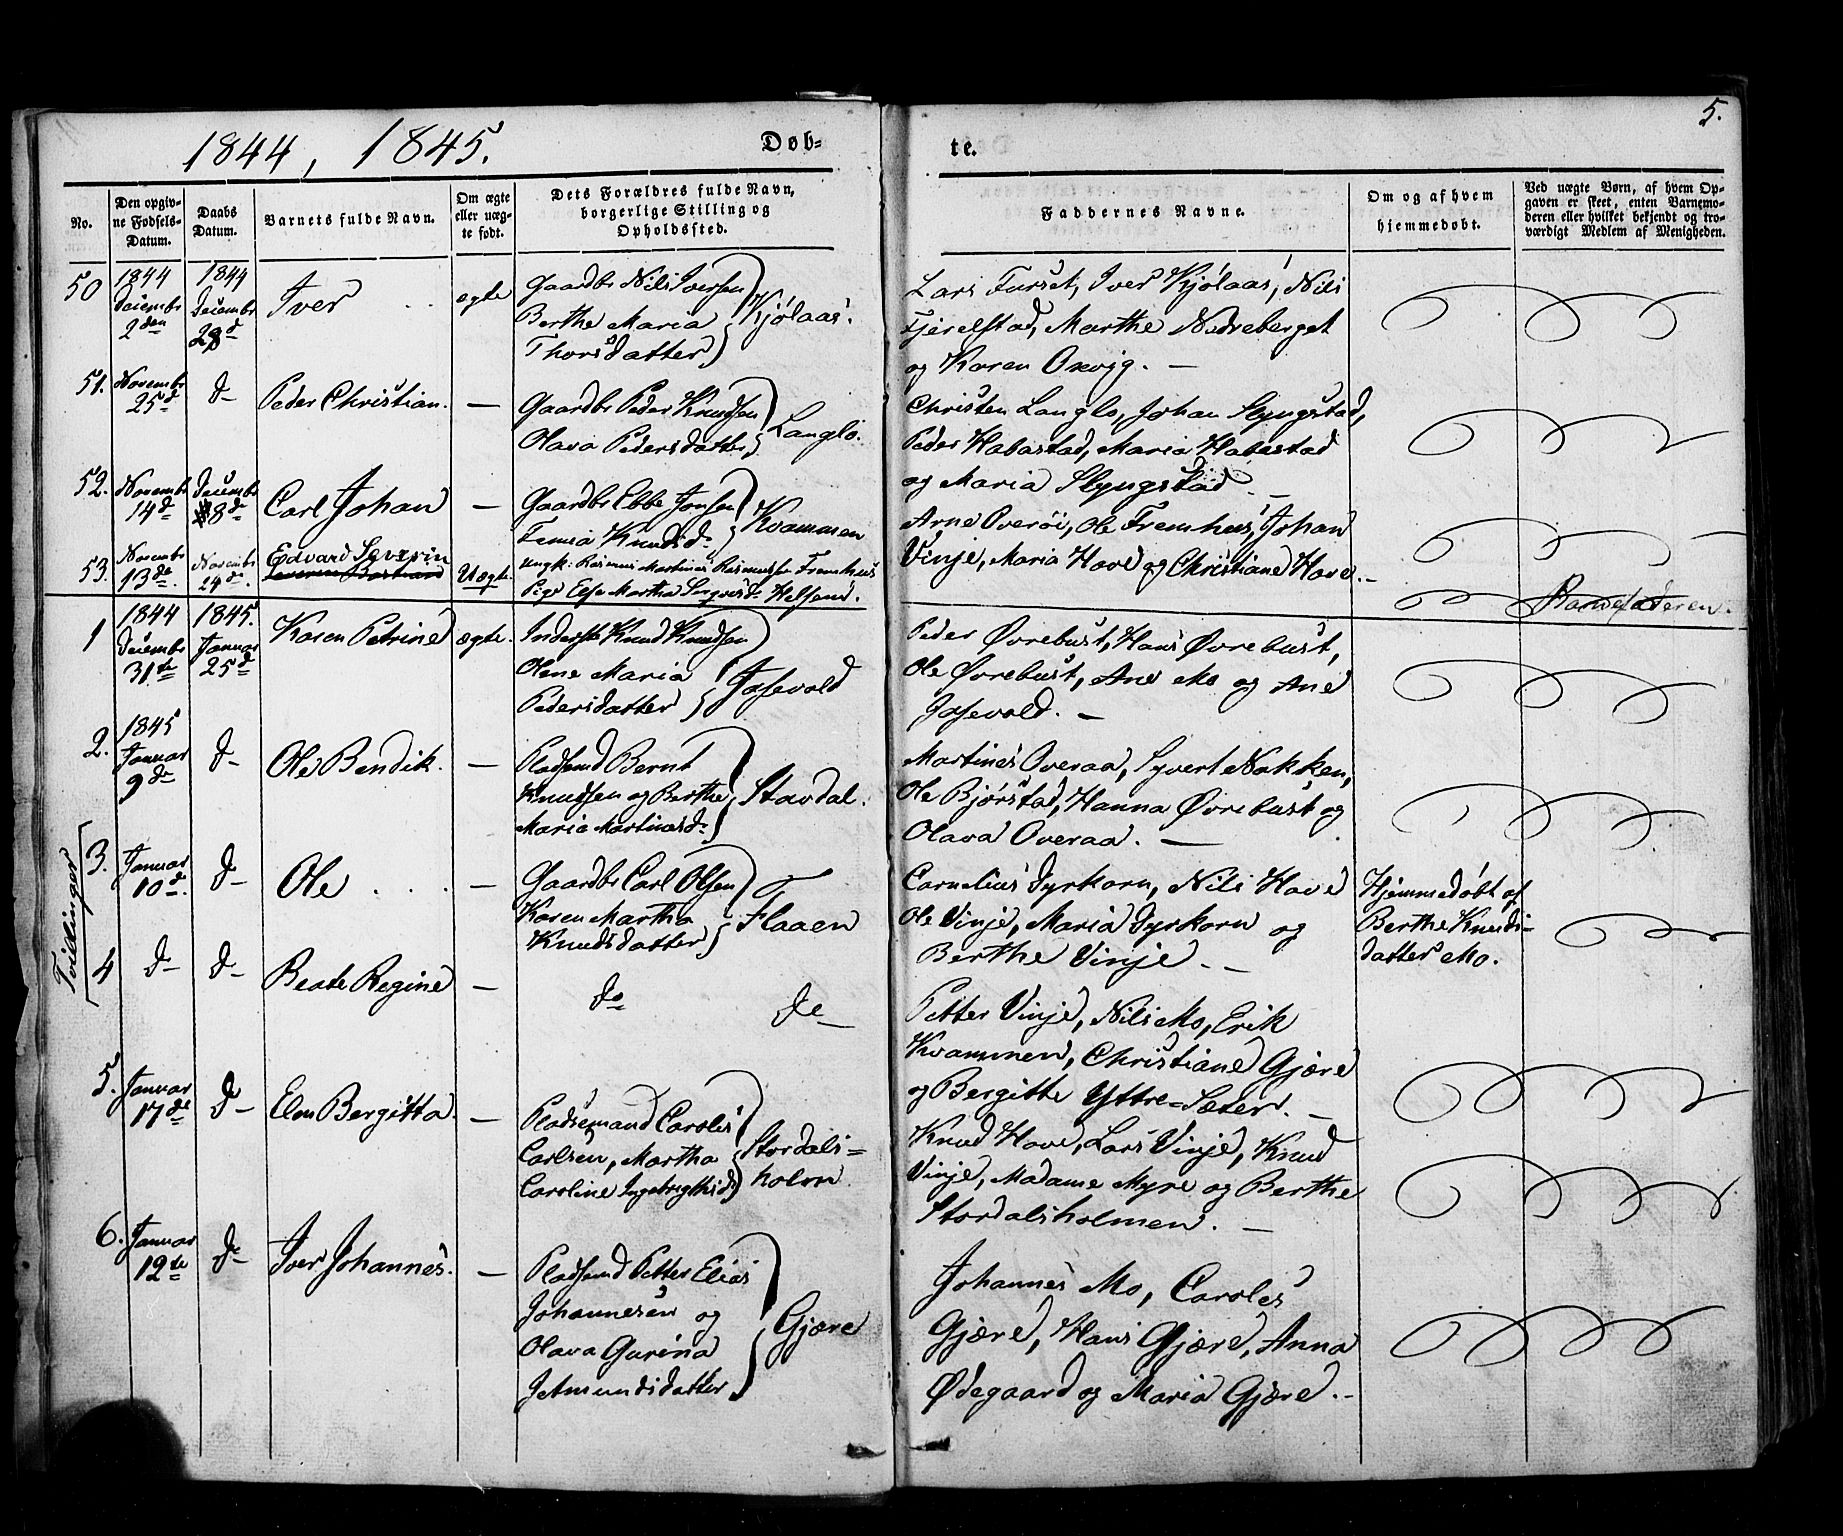 5.
1844, 1845.
Døb-
te.
No.
Den opgiv-
ne Fødsels-
Datum.
Daabs
Datum.
Barnets fulde Navn.
Om ægte
eller uæg-
te født.
Dets Forældres fulde Navn,
borgerlige Stilling og
Opholdssted.
Faddernes Navne.
Om og af hvem
hjemmedøbt.
Ved uægte Børn, af hvem Op-
gaven er skeet, enten Barnemo-
deren eller hvilket bekjendt og tro-
værdigt Medlem af Menigheden.
50
1844
Decembr
2den
1844
Decembr
28d
Iver
ægte
Gaardbr Nils Iversen
Berthe Maria
Thorsdatter
Kjølaas.
Lars Furset, Iver Kjølaas, Nils
Fjerelstad, Marthe Nedreberget
og Karen Oxvig. —
51.
Novembr
25d
d—
Peder Christian.
—
Gaardbr Peder Knudsen
Olava Pedersdatter
Langlo.
Christen Langlo, Johan Slyngstad,
Peder Habostad, Maria Habostad
og Maria Slyngstad —
52.
Novembr
14d
Decembr
8de
Carl Johan
—
Gaardbr Ebbe Jonsen
Knudsd.
Kvammen
Arne Overøi, Ole Fremhus, Johan
Vinje, Maria Hove og Christiane Hove. —
53.
Novembr
13de
Novembr
24de
Edvard Severin
Uægte.
Ungk: Rasmus Martinus Rasmussen Fremhus
Pige Else Martha
Barnefaderen.
1
1844
Decembr
31te
1845.
Januar
25d
Karen Petrine
ægte.
Inderste Knud Knudsen
Olene Maria
Pedersdatter
Jøsevold
Peder Øvrebust, Hans Øvrebust,
Ole Øvrebust, Ane Mo og Ane
Jøsevold. —
2.
1845
Januar
9de
d—
Ole Bendik.
—
Pladsmd Bernt
Knudsen og Berthe
Maria Martinusd.
Stavdal.
Martines Overaa, Syvert Nakken,
Ole Bjørstad, Hanna Øvrebust og
Olava Overaa. —
Tvillinger
3.
Januar
10d.
d—
Ole . . .
—
Gaardbr Carl Olsen
Karen Martha
Knudsdatter
Flaaen
Cornelius Dyrkorn, Nils Hove
Ole Vinje, Maria Dyrkorn og
Berthe Vinje. —
Hjemmedøbt af
Berthe Knuds-
datter Mo.
4
d—
d—
Beate Regine
—
do
do
Petter Vinje, Nils Mo, Erik
Kvammen, Christiane Gjære
og Bergitte Yttre-Sæter. —
5.
Januar
17de
d—
Elen Bergitta.
—
Pladsemand Carolus
Carlsen, Martha
Caroline Ingebrigtsd.
Stordals-
holm.
Knud Hove, Lars Vinje, Knud
Vinje, Madame Myre og Berthe
Stordalsholmen. —
6.
Januar
12te
d—
Iver Johannes.
—
Pladsmd Petter Elias
Johannesen og
Olava Gurina
Jetmundsdatter
Gjære
Johannes Mo, Carolus
Gjære, Hans Gjære, Anna
Ødegaard og Maria Gjære. —